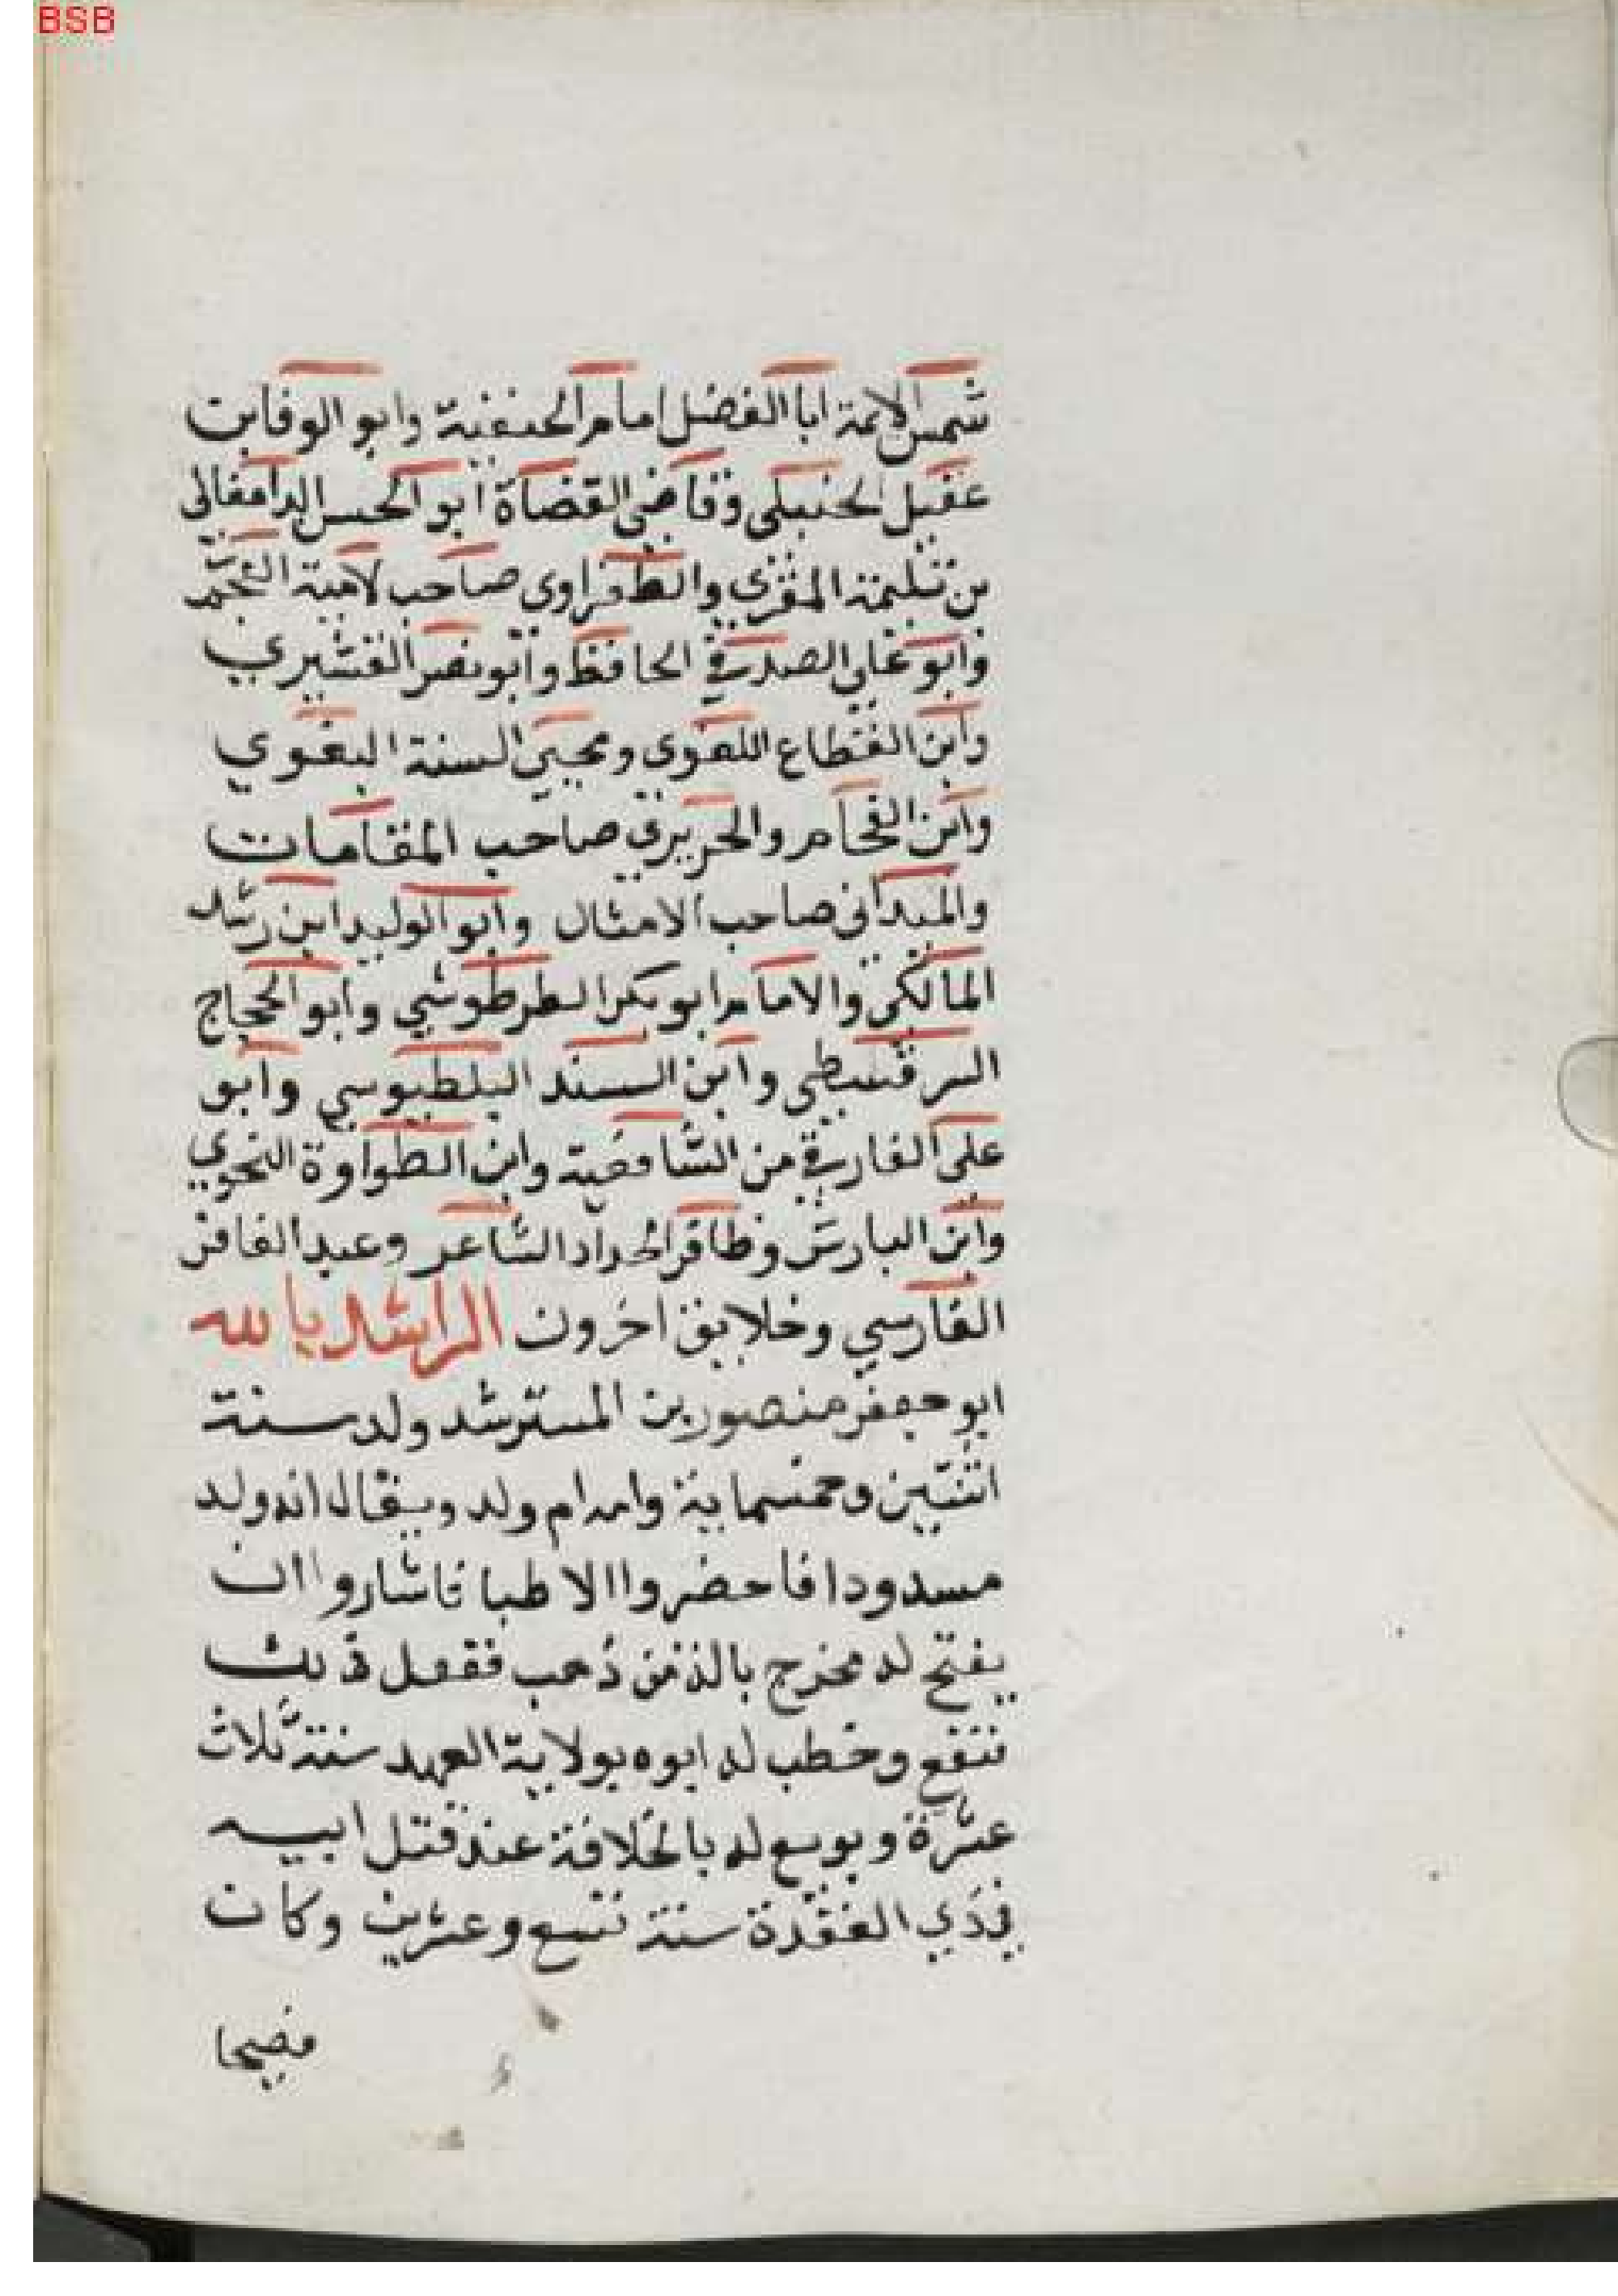 BSB
شمس الايمة ابا الفضل امام الحنفية وابو الوفا بن
عقيل الحنبلى وقاضي القضاة ابو الحسن الدامغانى
بن تليمة المقري والطغراوي صاحب لامية العجم
وابو على الصدفي الحافظ وأبو نصر القشيري
وابن القطاع اللغوى ومحيي السنة البغوي
وابن الفحام والحريري صاحب المقامات
والميدانى صاحب الامثال وابو الوليد ابن رشد
المالكي والامام ابو بكر الطرطوشي وابو الحجاج
السرقسطى وابن السيد البلطيوسي وابو
على الفارقي من الشافعية وابن الطراوة النحوي
وابن البارش وظافر الحداد الشاعر وعبد الغافر
الفارسي وخلايق اخرون الراشد بالله
ابو جعفر منصور بن المسترشد ولد سنة
اثنتين وخمسماية وامه ام ولد ويقال انه ولد
مسدودا فاحضروا الاطبا فاشاروا ان
يفتح له مخرج بالة من ذهب ففعل ذلك
فنفع وخطب له ابوه بولاية العهد سنة ثلاث
عشرة وبويع له بالخلافة عند قتل ابيه
في ذي القعدة سنة تسع وعشرين وكان
فصيحا